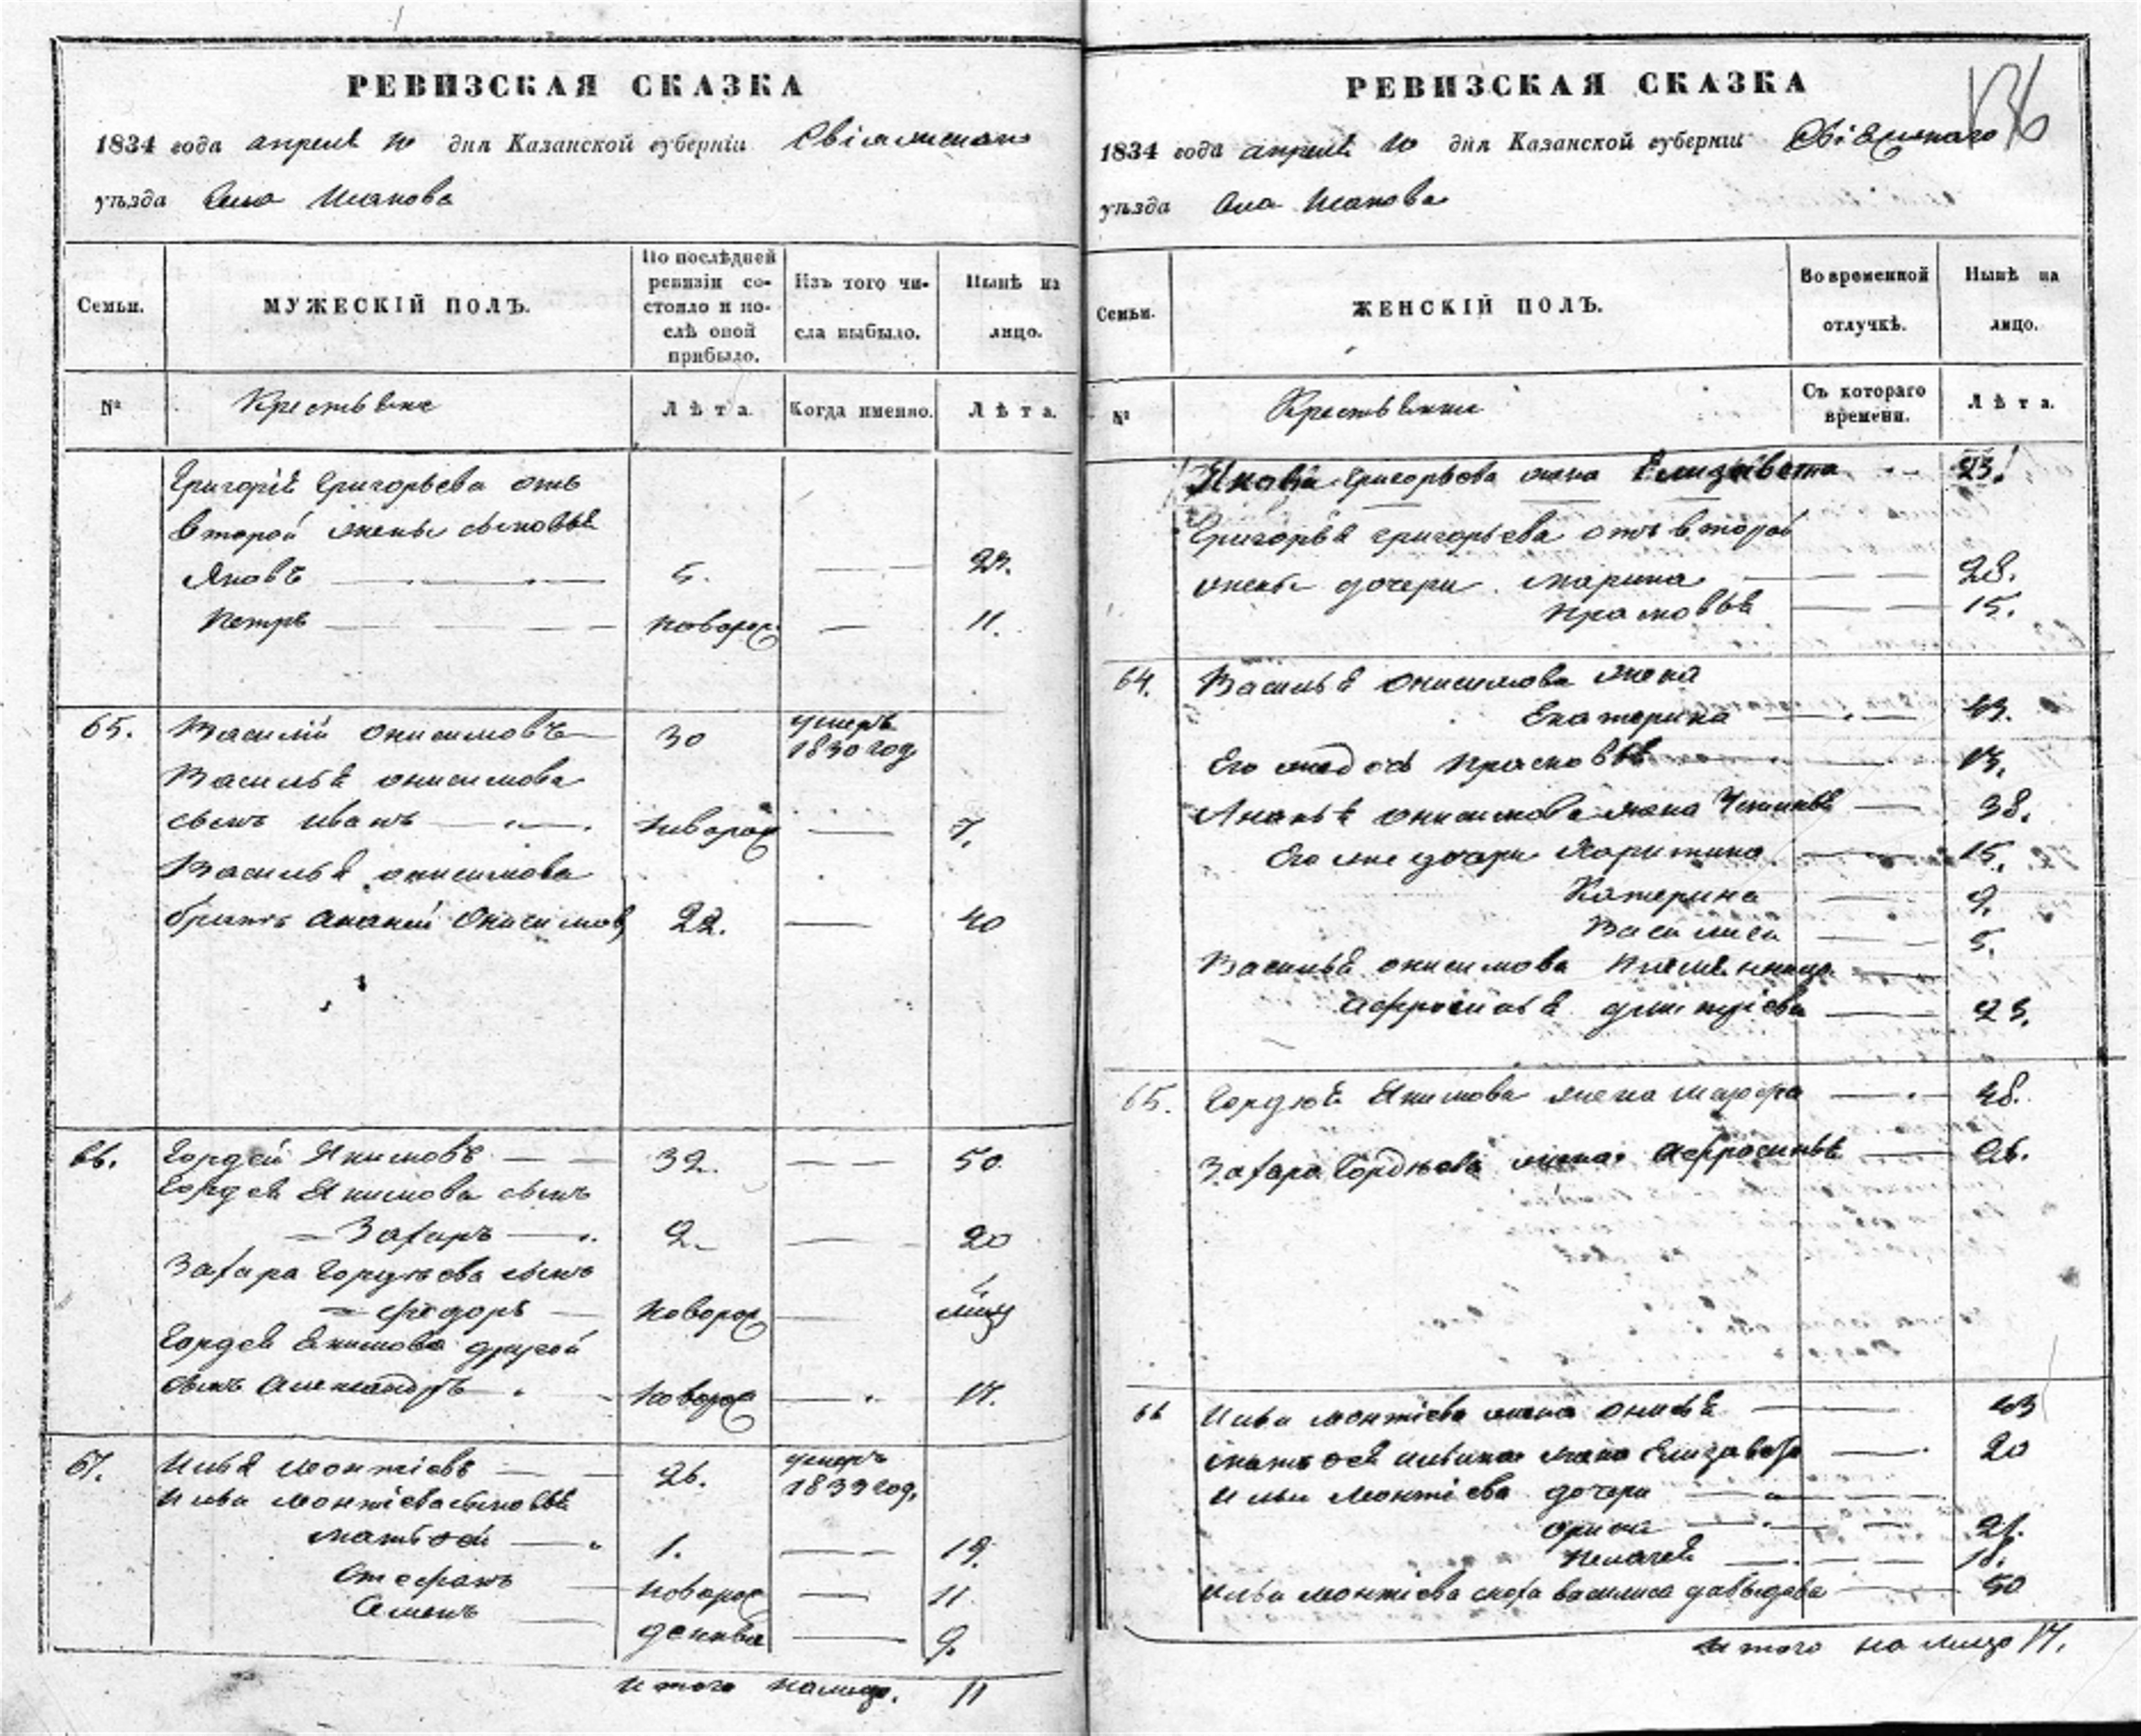 РЕВИЗСКАЯ СКАЗКА
1834 года апреля 10 дня Казанской губерніи Свіяжскаго
уѣзда Села
Семьи.
МУЖЕСКІЙ ПОЛЪ.
По послѣдней ревизіи состояло и послѣ оной прибыло.
Изъ того числа выбыло.
Нынѣ на лицо.
№
Крестьяне
Лѣта
Когда именно.
Лѣта.
Григорія Григорьева отъ
второй жены сыновья
Яковъ 5. 23.
Петръ новорож 11.
65. Василій Онисимовъ 30 умеръ 1830 год
Василья Онисимова
сынъ Иванъ новорож 7.
Василья Онисимова
братъ Ананій Онисимов 22. 40
66. Гордей Якимовъ 32. 50
Гордея Якимова сынъ
Захаръ 2. 20
Захара Гордѣева сынъ
Федоръ новорож
Гордея Якимова другой
сынъ Александръ новорож 17.
67. Илья Леонтіевъ 26. умеръ 1833 год.
Ильи Леонтіева сыновья
Матвей 1. 19.
Стефанъ новорож 11
Семенъ 9.
итого налицо. 11
РЕВИЗСКАЯ СКАЗКА
136
1834 года апреля 10 дня Казанской губерніи Свіяжскаго
уѣзда Села
Семьи.
ЖЕНСКІЙ ПОЛЪ.
Во временной отлучкѣ.
Нынѣ на лицо.
№
Крестьянки
Съ котораго времени.
Лѣта.
Якова Григорьева жена Елизавета 23.
Григорья Григорьева отъ второй
жены дочери Марина 28.
Прасковья 15.
64. Василья Онисимова жена
Екатерина 43.
Его же дочь Прасковья 13.
Ананья Онисимова жена Устинья 38.
Его же дочери Харитина 15.
Катерина 9.
Василиса 5.
Василья Онисимова племянница
Афросинья Дмитріева 23.
65. Гордея Якимова жена Марфа 48.
Захара Гордѣева жена Афросинья 26.
66 Ильи Леонтіева жена 43
Матвея Ильина жена Елизавета 20
Ильи Леонтіева дочери
Орина 21.
Пелагея 18.
Ильи Леонтіева сноха Василиса Давыдова 50
итого на лицо 17.